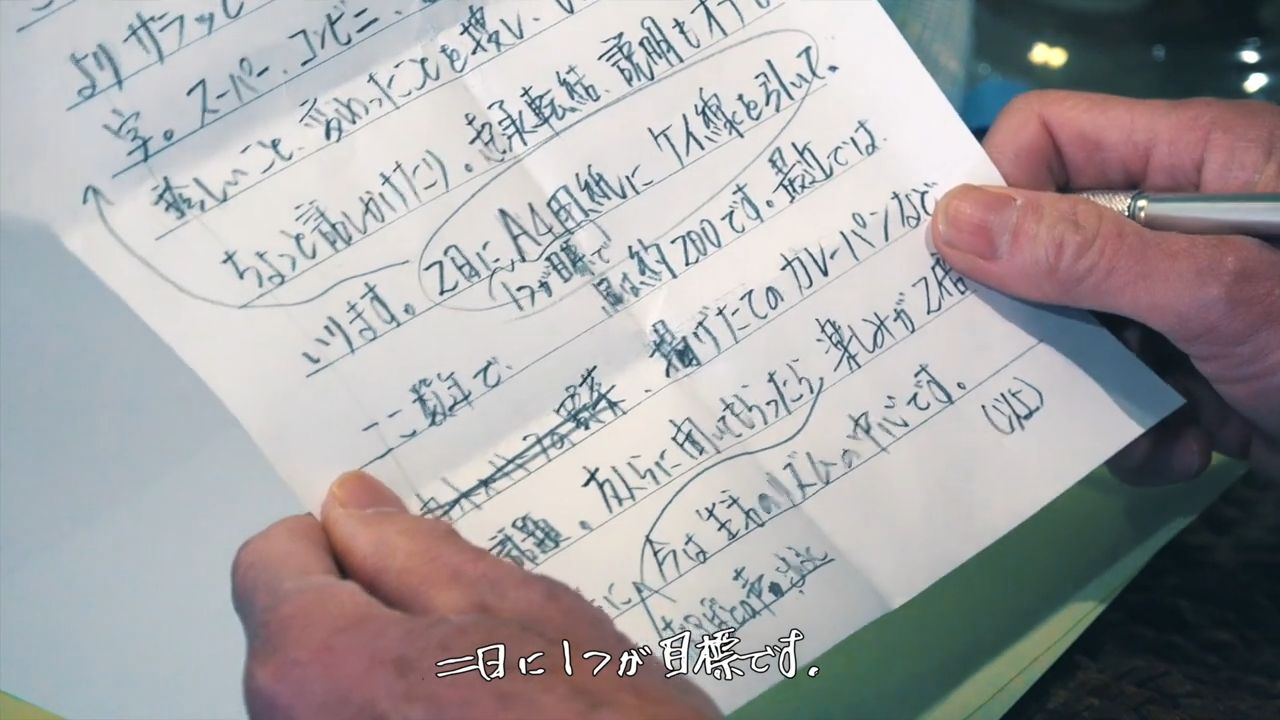 よりサラッと
字。スーパー、コンビニ、
珍しいこと、変わったことを捜し、
ちょっと話しかけたり。起承転結、説明もオチも
いります。2日に A4用紙に ケイ線を引いて、
1つが目標で
ここ数年で、
量は約200です。最近では、
揚げたてのカレーパンなど
話題。友人らに聞いてもらったら 楽しみが2倍
に 今は生活のリズムの中心です。
(以上)
二日に1つが目標です。